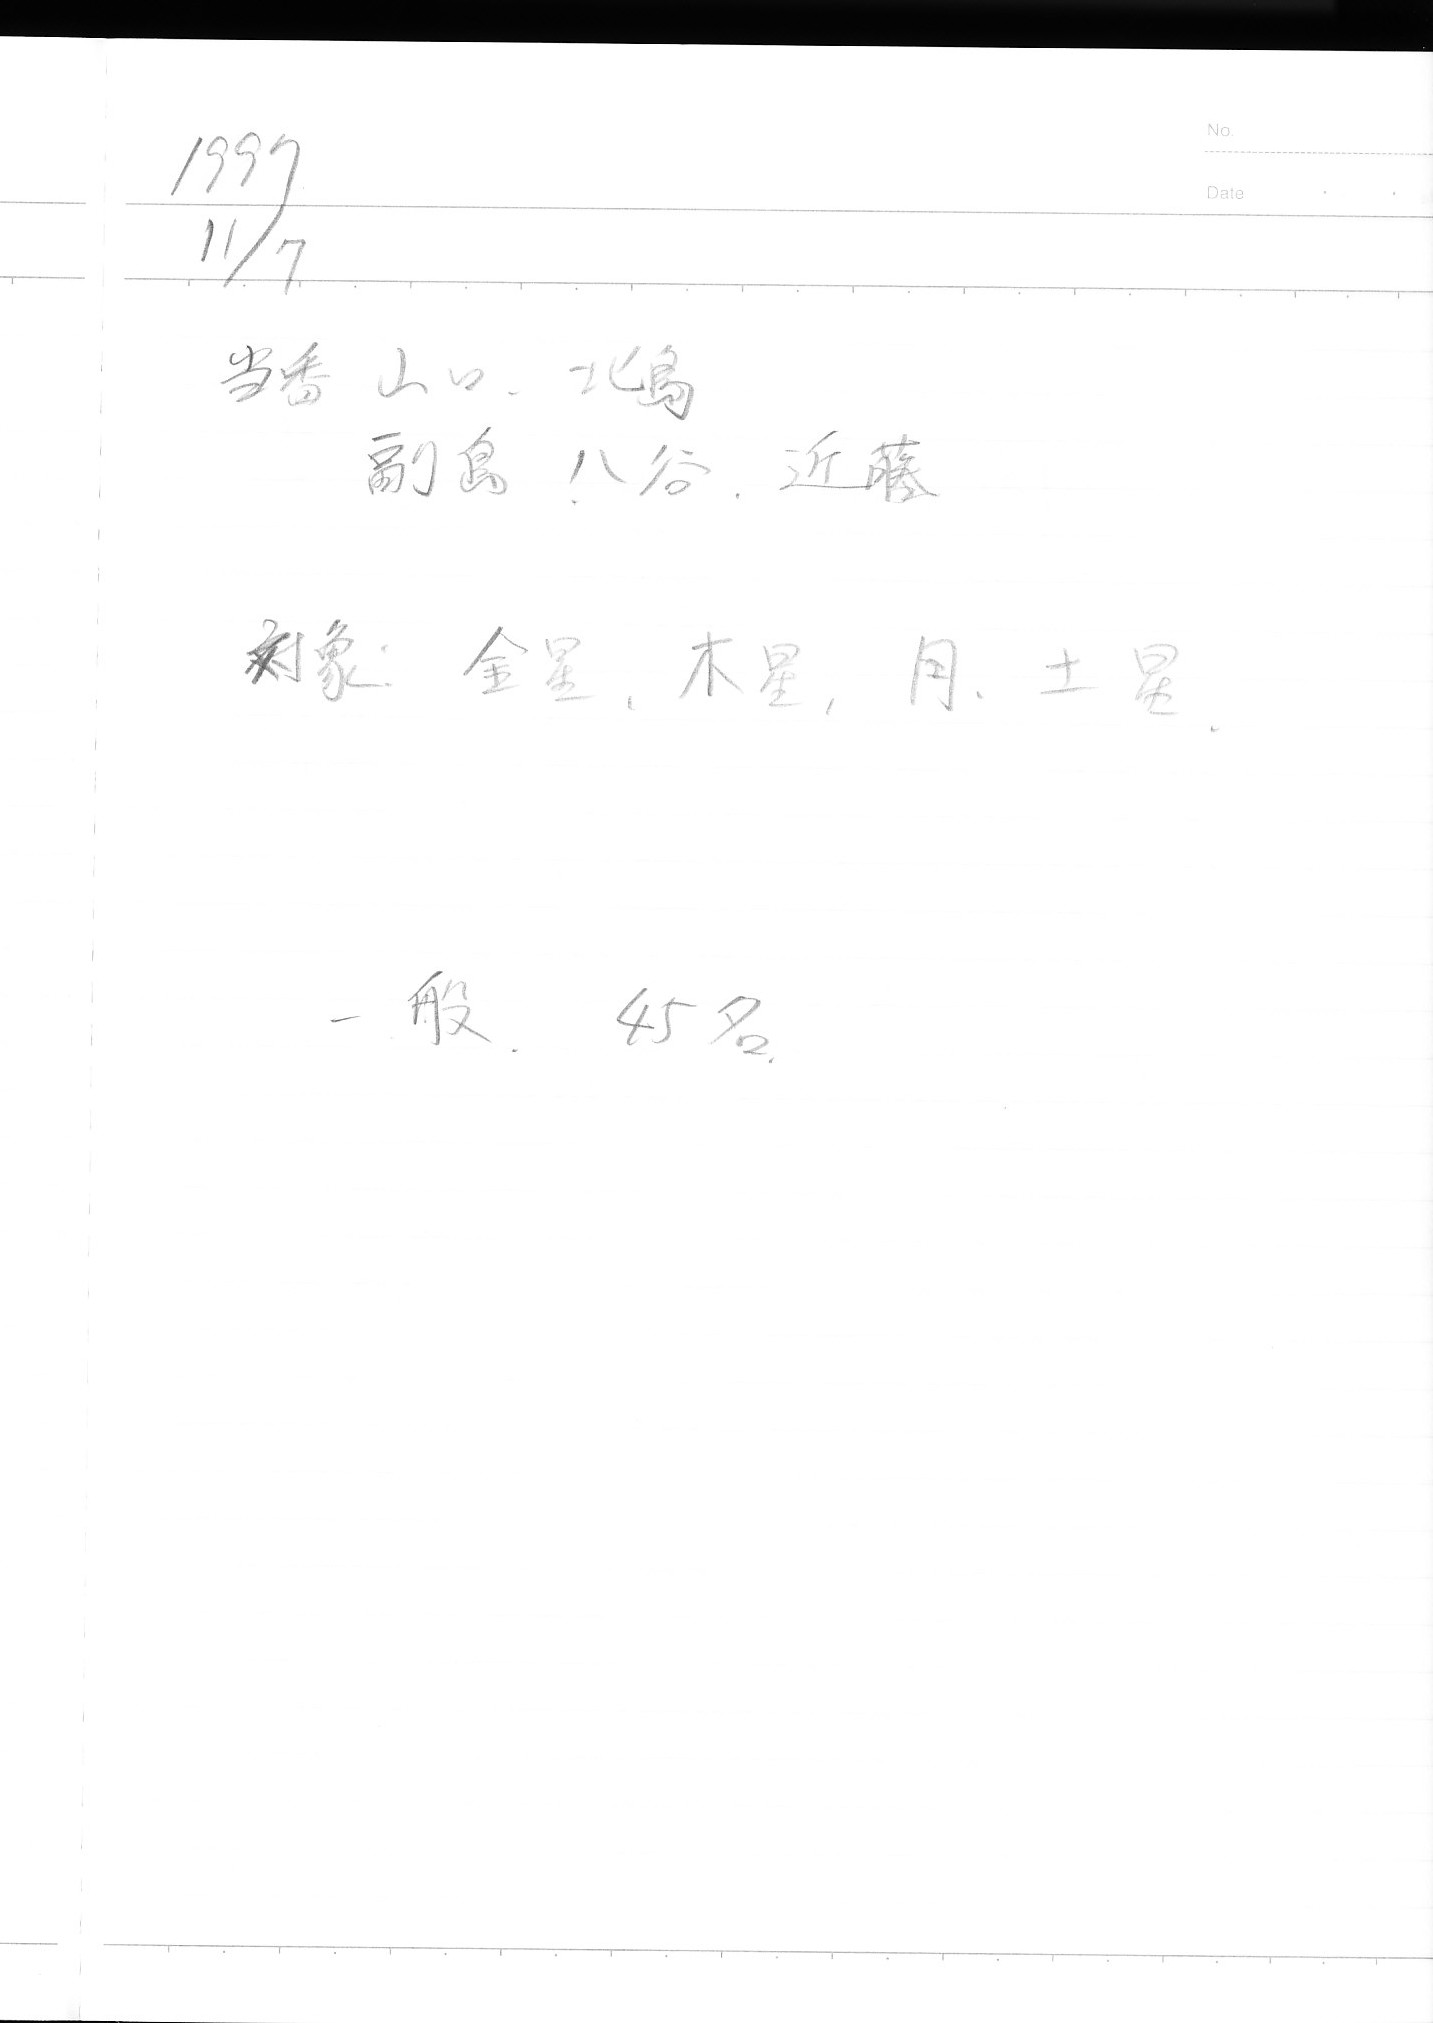 No.
1997
Date
11/7
当番 山口、北島
副島、八谷、近藤
対象: 金星、木星、月、土星.
一般. 45名.